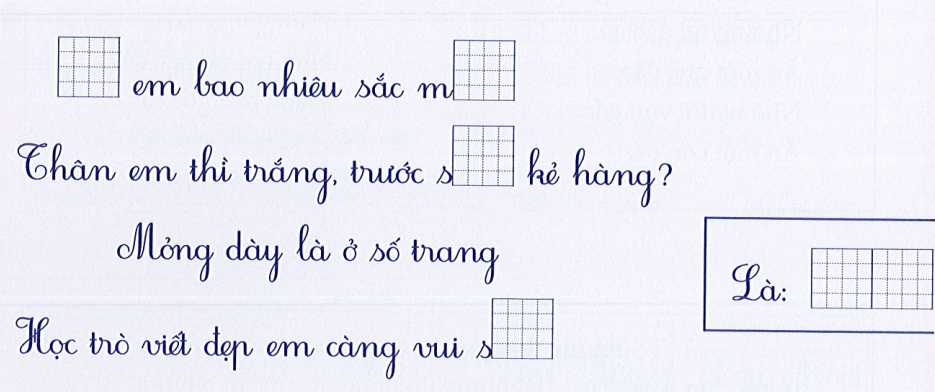 em bao nhiêu sắc m
Thân em thì trắng, trước s kẻ hàng?
Mỏng dày là ở số trang
Là:
Học trò viết đẹp em càng vui s